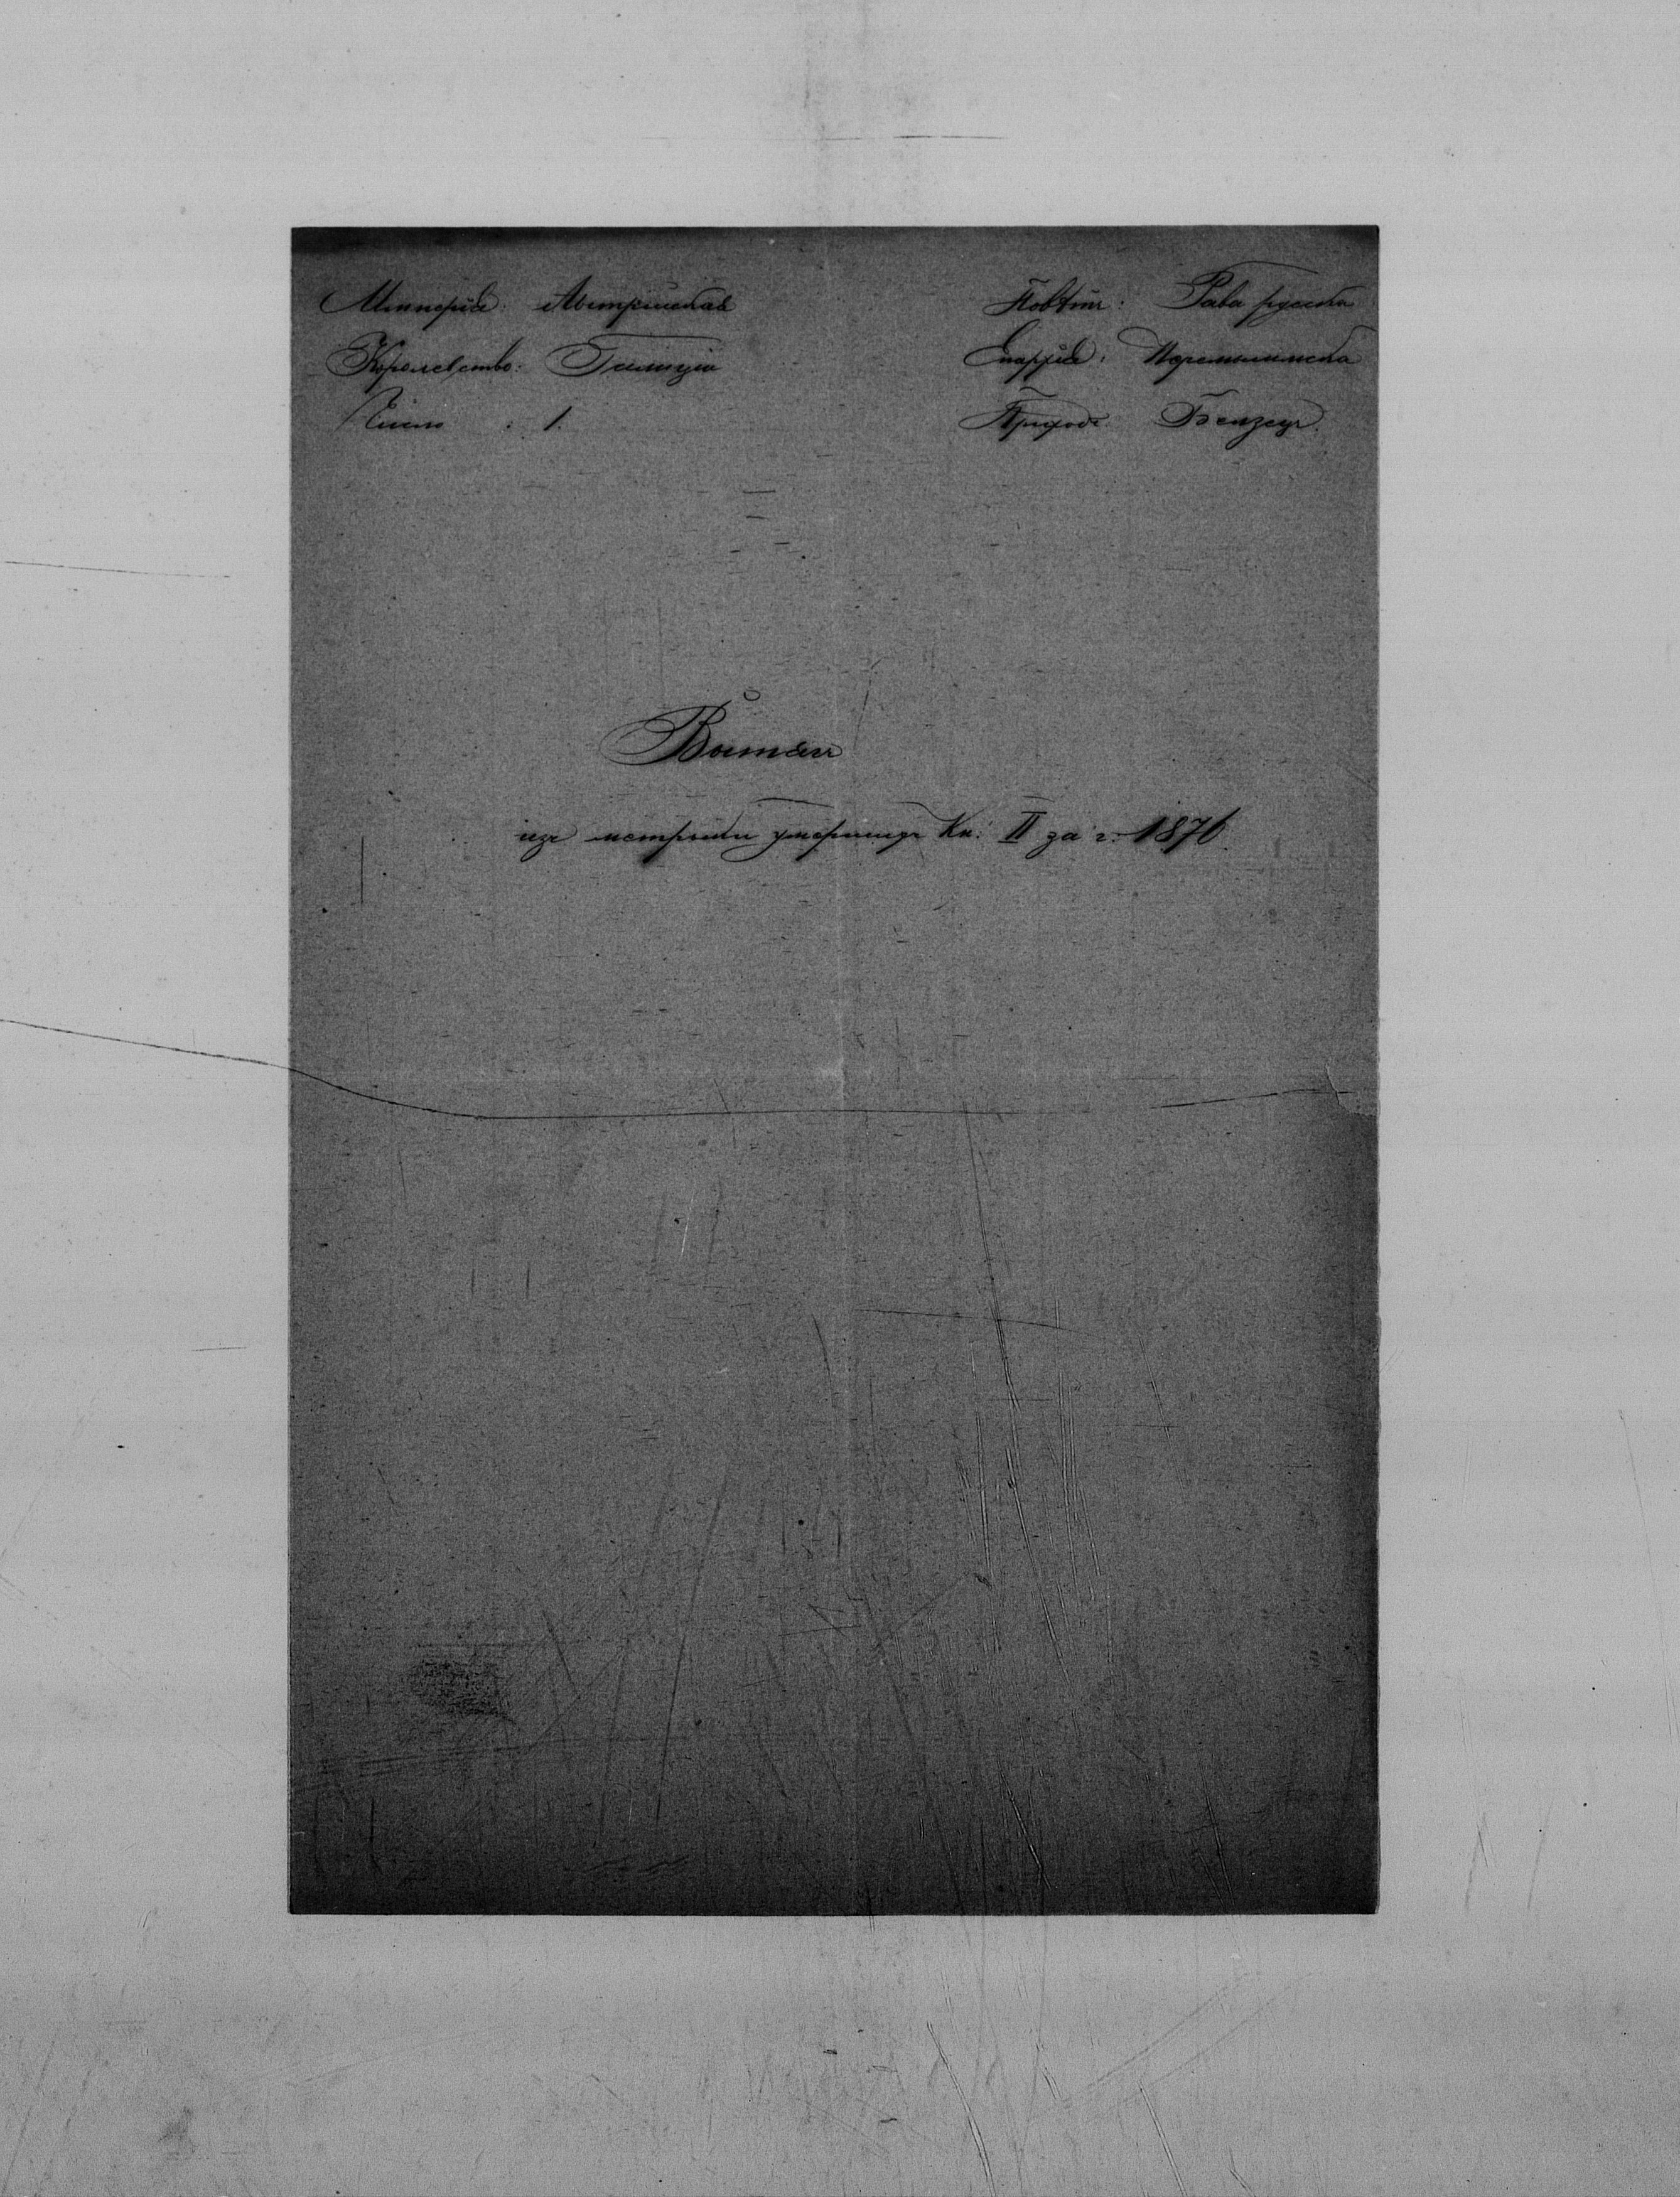 Имперія: Австрійская
Королевство: Галиція
Число : 1.
Повѣтъ: Рава руска
Епархія: Перемышльска
Приходъ Белзецъ.
Вытягъ
изъ метрыки умершихъ Кн: II за г: 1876.